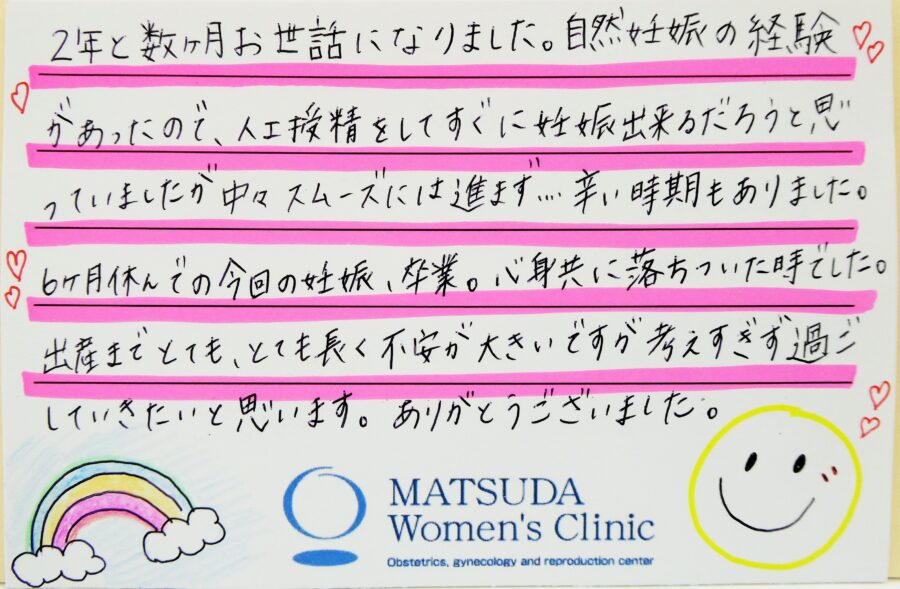 2年と数ヶ月お世話になりました。自然妊娠の経験
があったので、人工授精をしてすぐに妊娠出来るだろうと思
っていましたが中々スムーズには進まず…. 辛い時期もありました。
6ヶ月休んでの今回の妊娠、卒業。心身共に落ちついた時でした。
出産までとても、とても長く不安が大きいですが考えすぎず過ご
していきたいと思います。ありがとうございました。
MATSUDA
Women's Clinic
Obstetrics, gynecology and reproduction center